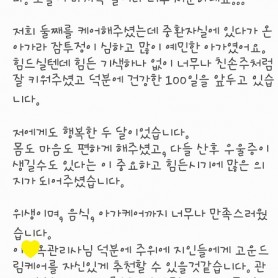 저희 둘째를 케어해주셨는데 중환자실에 있다가 온
아가라 잠투정이 심하고 많이 예민한 아가였어요.
힘드실텐데 힘든 기색하나 없이 너무나 친손주처럼
잘 키워주셨고 덕분에 건강한 100일을 앞두고 있습
니다.
저에게도 행복한 두 달이었습니다.
몸도 마음도 편하게 해주셨고, 다들 산후 우울증이
생길수도 있다는 이 중요하고 힘든시기에 많은 의
지가 되어주셨습니다.
위생이며, 음식, 아가케어까지 너무나 만족스러웠
습니다.
이 옥관리사님 덕분에 주위에 지인들에게 고운드
림케어를 자신있게 추천할 수 있을것같습니다. 관